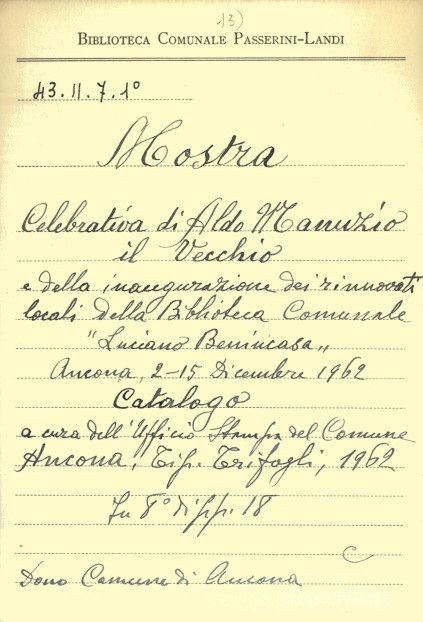 13)
BIBLIOTECA COMUNALE PASSERINI-LANDI
43.II.7.1°
Mostra
Celebrativa di Aldo Manuzio
il Vecchio
e della inaugurazione dei rinnovati
locali della Biblioteca Comunale
"Luciano Benincasa„
Ancona, 2-15 Dicembre 1962
Catalogo
a cura dell'Ufficio Stampa del Comune
Ancona, Tip. Trifogli, 1962
In 8° di pp. 18
C
Dono Comune di Ancona